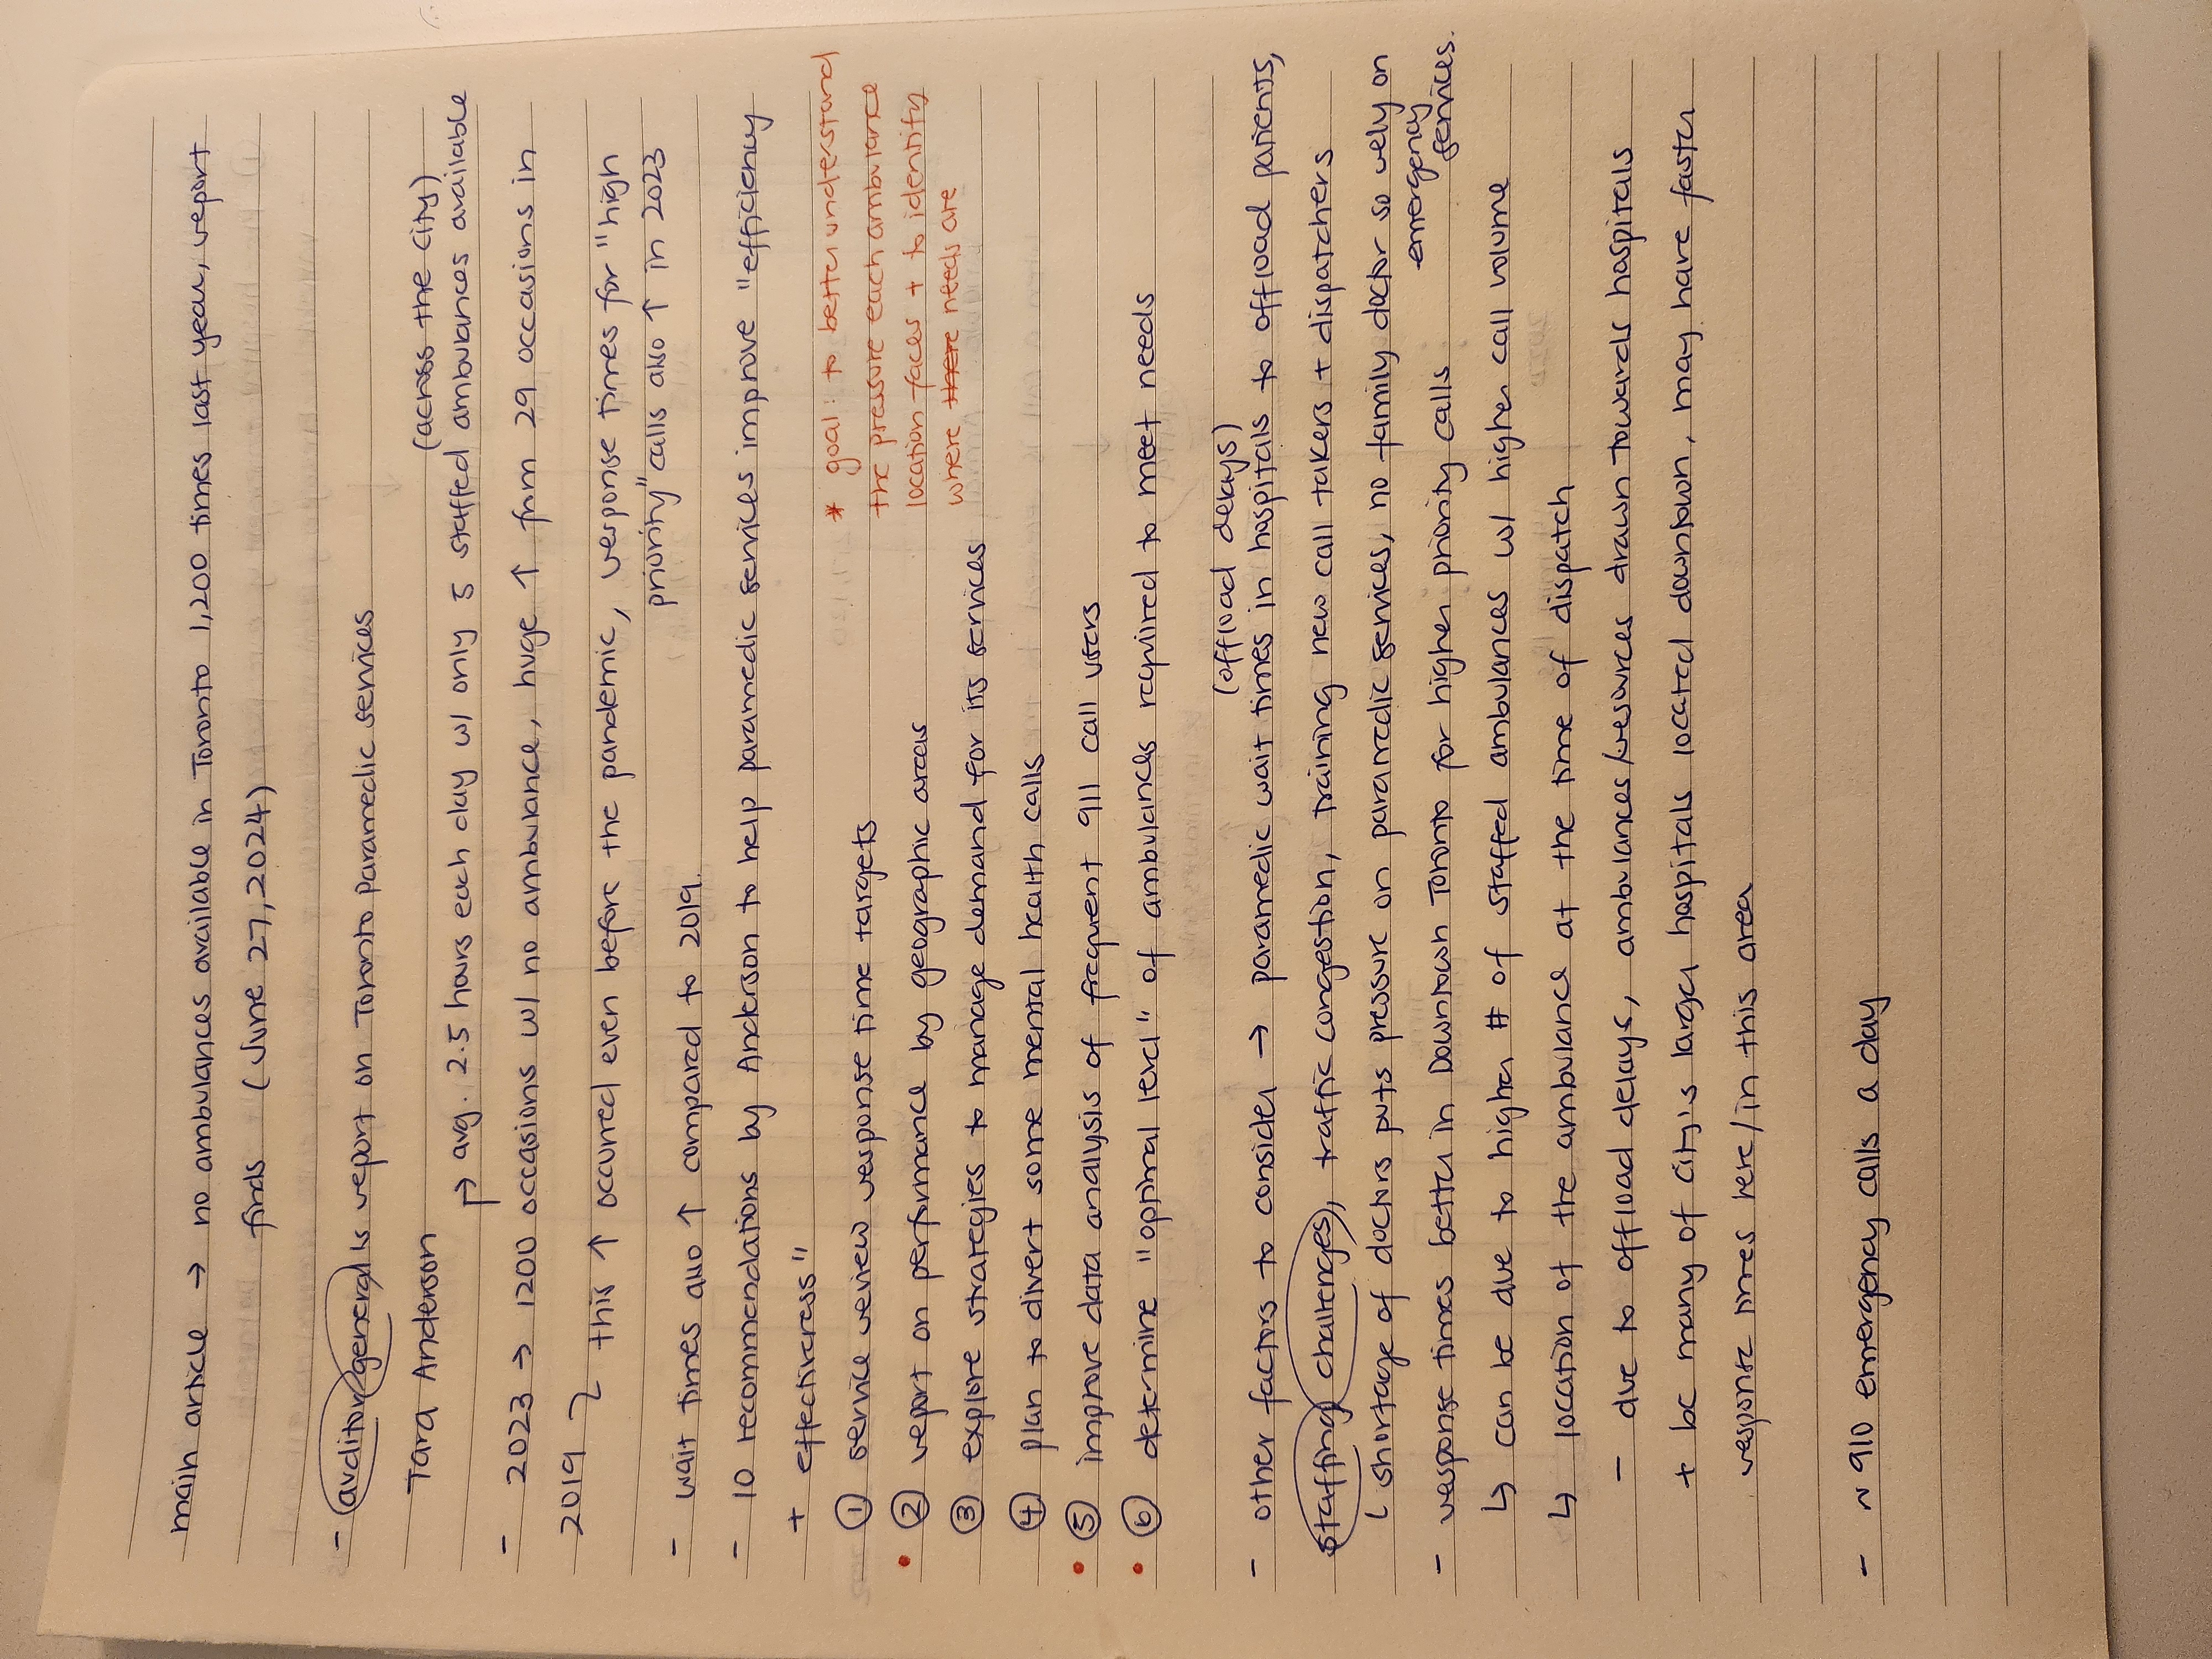 main article → no ambulances available in Toronto 1,200 times last year, report
finds (June 27, 2024)
- auditor general's report on Toronto Paramedic services
Tara Anderson
(across the city)
↱ avg. 2.5 hours each day w/ only 5 staffed ambulances available
- 2023 → 1200 occasions w/ no ambulance, huge ↑ from 29 occasions in
2019
this ↑ occurred even before the pandemic, response times for "high
priority" calls also ↑ in 2023
- wait times also ↑ compared to 2019.
- 10 recommendations by Anderson to help paramedic services improve "efficiency
+ effectiveness"
① service review response time targets
• ② report on performance by geographic areas
③ explore strategies to manage demand for its services
④ plan to divert some mental health calls
• ⑤ improve data analysis of frequent 911 call users
• ⑥ determine "optimal level" of ambulances required to meet needs
* goal: to better understand
the pressure each ambulance
location faces + to identify
where there needs are
(offload delays)
- other factors to consider → paramedic wait times in hospitals to offload patients,
staffing challenges, traffic congestion, training new call takers + dispatchers
└ shortage of doctors puts pressure on paramedic services, no family doctor so rely on
emergency
services.
- response times better in Downtown Toronto for higher priority calls
↳ can be due to higher # of staffed ambulances w/ higher call volume
↳ location of the ambulance at the time of dispatch
- due to offload delays, ambulances/resources drawn towards hospitals
+ bc many of city's larger hospitals located downtown, may have faster
response times here/in this area
- ~ 910 emergency calls a day